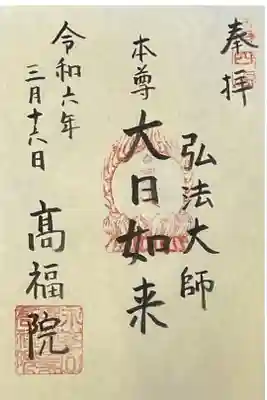 奉拝
弘法大師
本尊 大日如来
令和六年
三月十六日
高福院